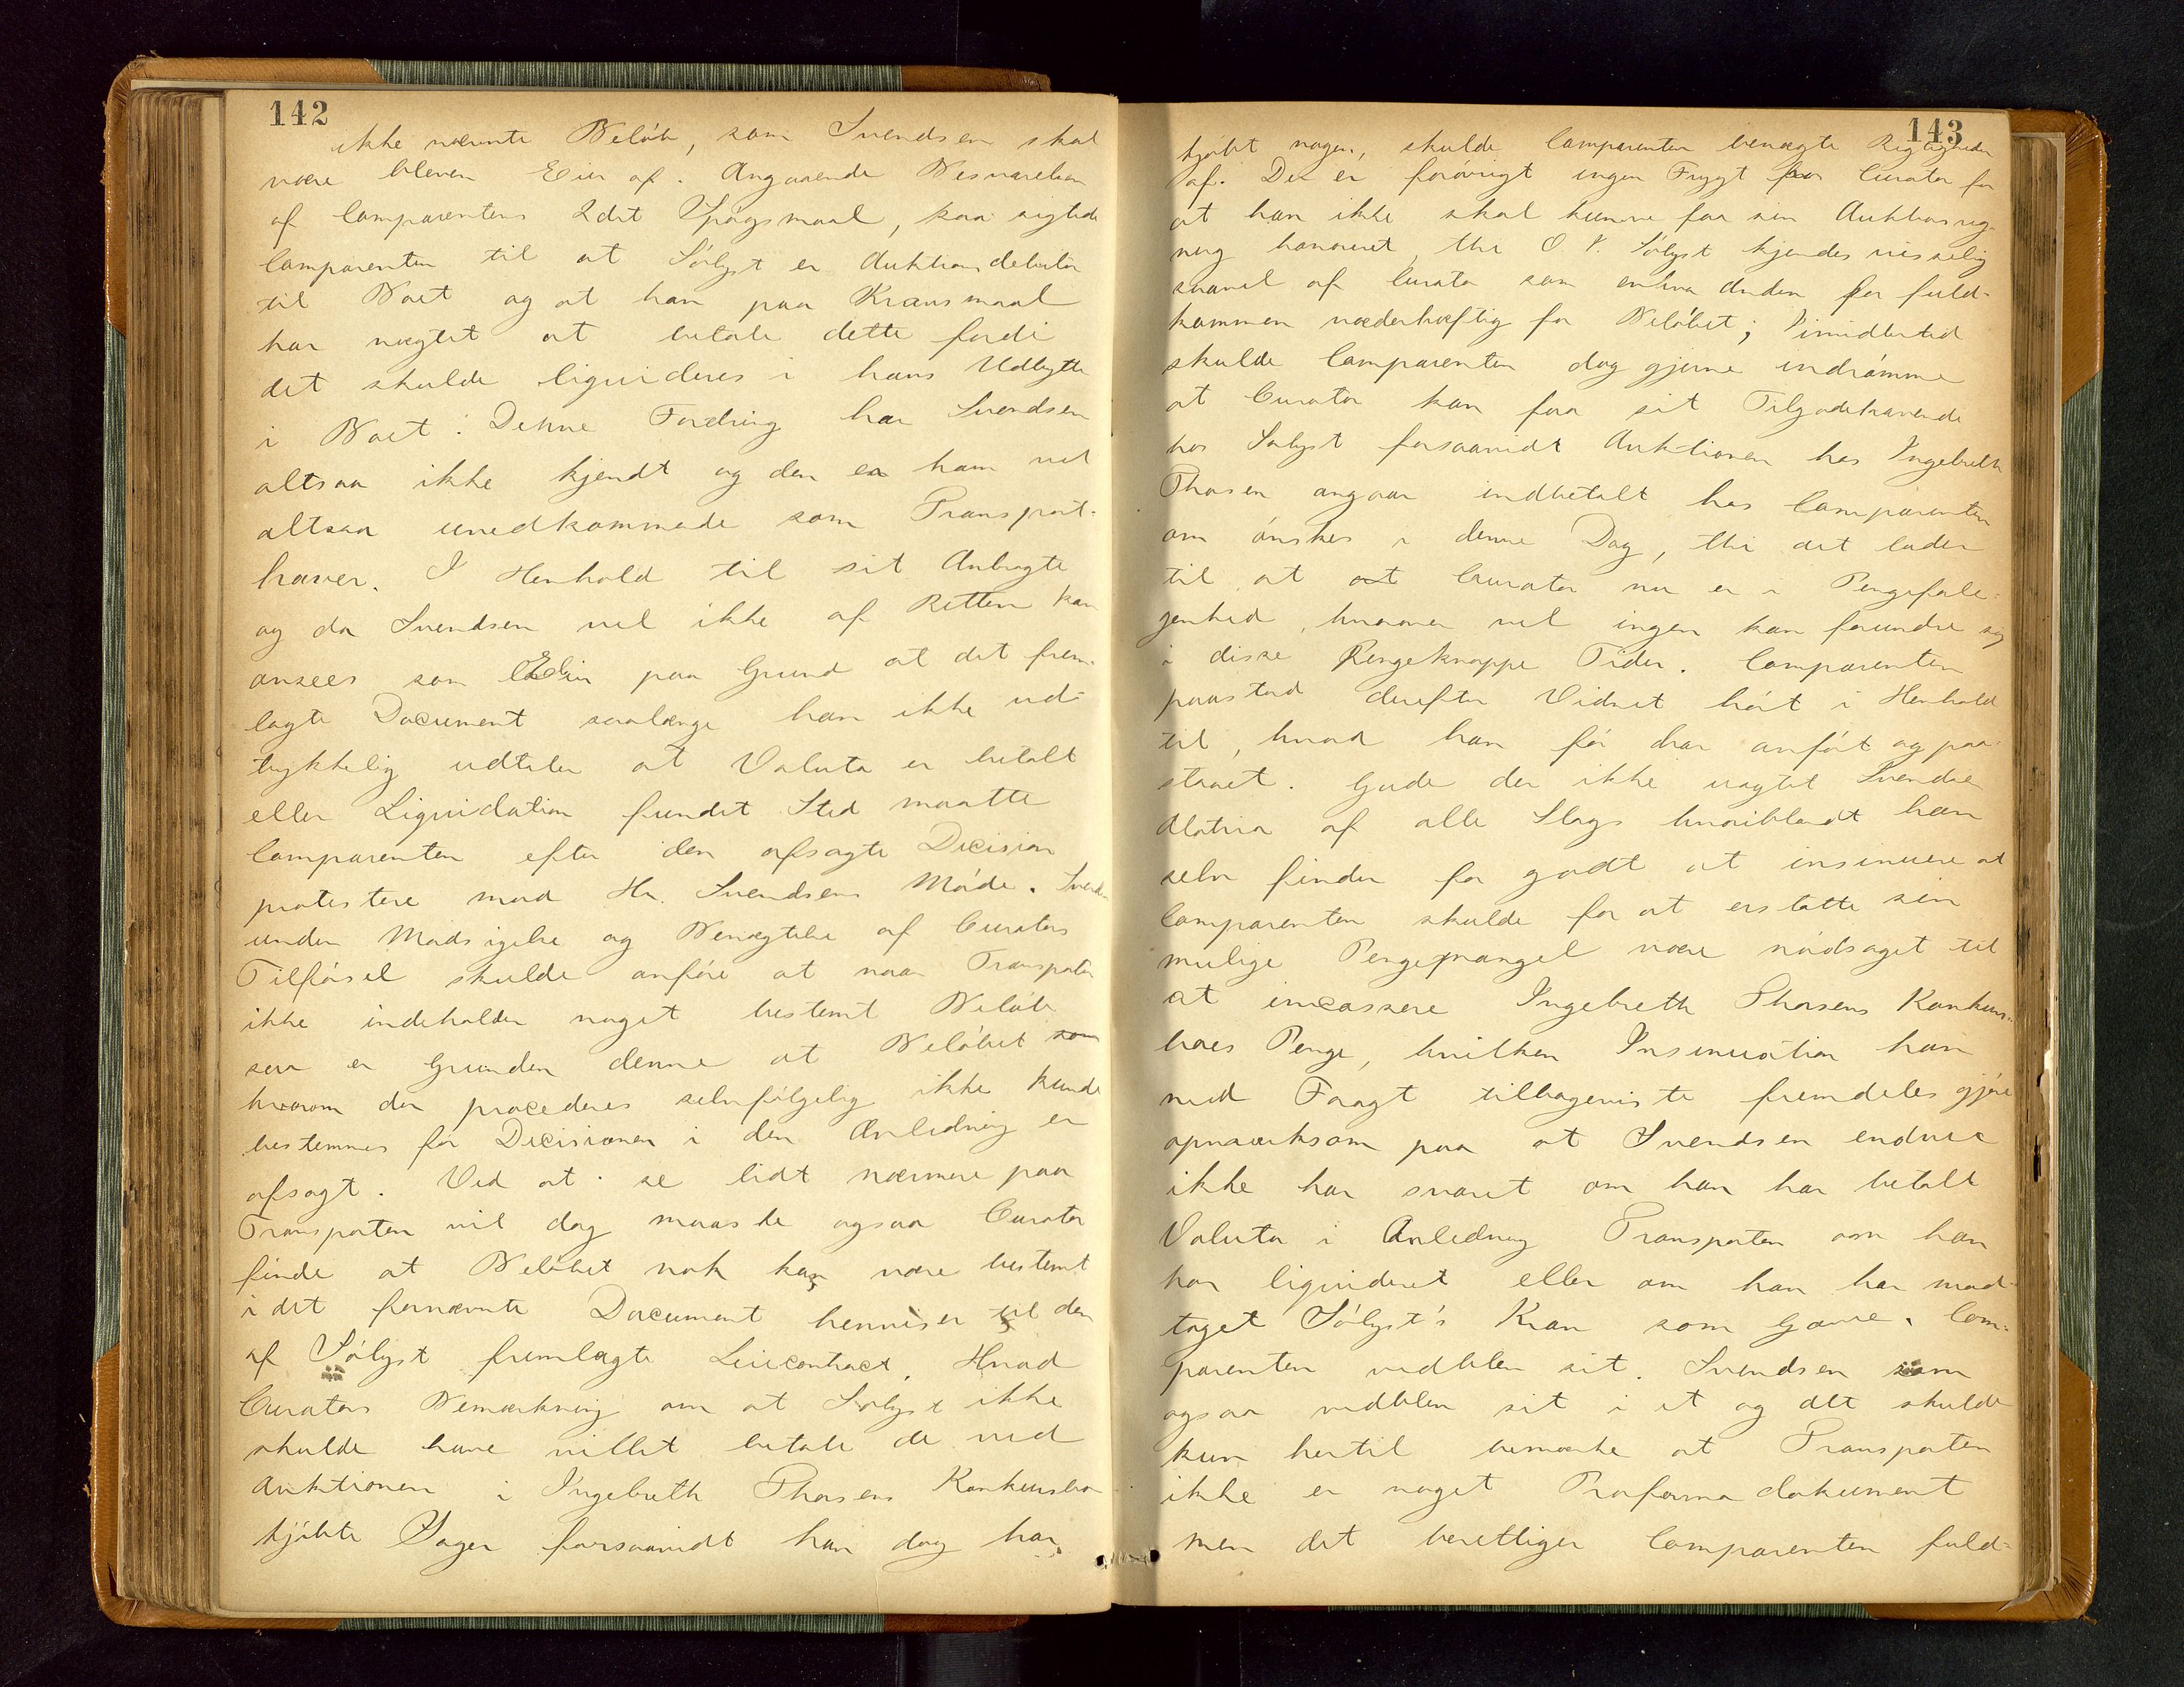 142
ikke nævnte Beløb, som Svendsen skal
være bleven Eier af. Angaaende Besvarelsen
af Comparentens 2det Spøgsmaal, saa sigtede
Comparenten til at Sølyst er Auktionsdebitor
til Boet og at han paa Kravsmaal
har nægtet at betale dette fordi
det skulde liquideres i hans Udbytte
i Boet. Denne Fordring har Svendsen
altsaa ikke kjendt og den er ham vel
altsaa uvedkommede som Transport-
haver. I Henhold til sit Anbragte
og da Svendsen vel ikke af Retten kan
ansees som Eier paa Grund at det frem-
lagte Document saalænge han ikke ud-
trykkelig udtaler at Valuta er betalt
eller Liquidation fundet Sted maatte
Comparenten efter den afsagte Decision
protestere mod Hr. Svendsens Møde. Svendsen
under Modsigelse og Benægtelse af Curators
Tilførsel skulde anføre at naar Transporten
ikke indeholder noget bestemt Beløb
saa er Grunden denne at Beløbet som
hvorom der procederes selvfølgelig ikke kunde
bestemmes før Decisionen i den Anledning er
afsagt. Ved at se lidt nærmere paa
Transporten vil dog maaske ogsaa Curator
finde at Beløbet nok kan være bestemt
i det fornævnte Document henviser til den
af Sølyst fremlagte Leiecontract, Hvad
Curators Bemærkning om at Sølyst ikke
skulde have villet betale de ved
Auktionen i Ingebreth Thorsens Konkursbo
kjøbte Sager forsaavidt han dog har
143
kjøbt nogen, skulde Comparenten benægte Rigtigheden
af. Der er forøvrigt ingen Frygt for Curator for
at han ikke skal kunne faa sin Auktionsreg-
ning honoreret, thi O. V. Sølyst kjendes visselig
saavel af Curator som enhver Anden for fuld-
kommen vederhæftig for Beløbet; imidlertid
skulde Comparenten dog gjerne indrømme
at Curator kan faa sit Tilgodehavende
hos Sølyst forsaavidt Auktionen hos Ingebreth
Thorsen angaar indbetalt hos Comparenten
om ønskes i denne Dag, thi det lader
til at at Curator nu er i Pengeforle-
genhed, hvorover vel ingen kan forundre sig
i disse Pengeknappe Tider. Comparenten
paastod derefter Vidnet hørt i Henhold
til, hvad han før har anført og paa-
staaet. Gude der ikke vragtet Svendsen
Motiver af alle Slags hvoriblandt han
selv finder for godt at insinuere at
Comparenten skulde for at erstatte sin
mulige Pengemangel være nødsaget til
at incassere Ingebreth Thorsens Konkurs-
boes Penge, hvilken Insinuation han
med Foragt tilbageviste fremdeles gjøre
opmærksom paa at Svendsen endnu
ikke har svaret om han har betalt
Valuta i Anledning Transporten om han
har liquideret eller om han har mod-
taget Sølyst's Krav som Gave. Com-
parenten vedblev sit. Svendsen som
ogsaa vedblev sit i et og alt skulde
kun hertil bemærke at Transporten
ikke er noget Proforma dokument
men det berettiger Comparenten fuld-